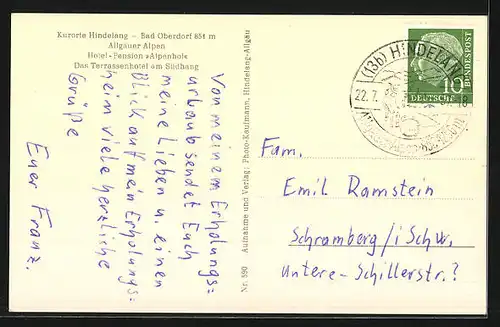 Kurorte Hindelang – Bad Oberdorf 851 m
Allgäuer Alpen
Hotel-Pension »Alpenhof«
Das Terrassenhotel am Südhang
Von meinem Erholungs=
urlaub sendet Euch
meine Lieben u. einen
Blick auf mein Erholungs=
heim viele herzliche
Grüße
Euer Franz.
Nr. 590 Aufnahme und Verlag: Photo-Kaufmann, Hindelang-Allgäu
(13b) HINDELANG
22.7.
18
10
DEUTSCHE
BUNDESPOST
Fam.
Emil Ramstein
Schramberg/i Schw.
Untere-Schillerstr.?